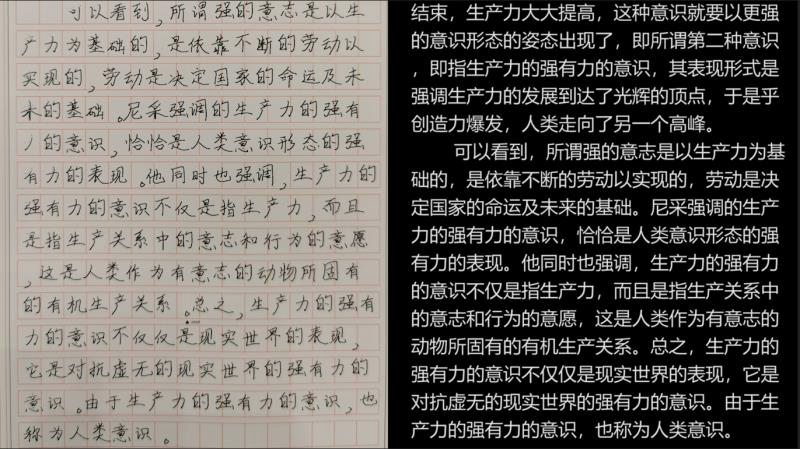 可以看到，所谓强的意志是以生
产力为基础的，是依靠不断的劳动以
实现的，劳动是决定国家的命运及未
来的基础。尼采强调的生产力的强有
力的意识，恰恰是人类意识形态的强
有力的表现。他同时也强调，生产力的
强有力的意识不仅是指生产力，而且
是指生产关系中的意志和行为的意愿
，这是人类作为有意志的动物所固有
的有机生产关系。总之，生产力的强有
力的意识不仅仅是现实世界的表现，
它是对抗虚无的现实世界的强有力的
意识。由于生产力的强有力的意识，也
称为人类意识。
结束，生产力大大提高，这种意识就要以更强
的意识形态的姿态出现了，即所谓第二种意识
，即指生产力的强有力的意识，其表现形式是
强调生产力的发展到达了光辉的顶点，于是乎
创造力爆发，人类走向了另一个高峰。
可以看到，所谓强的意志是以生产力为基
础的，是依靠不断的劳动以实现的，劳动是决
定国家的命运及未来的基础。尼采强调的生产
力的强有力的意识，恰恰是人类意识形态的强
有力的表现。他同时也强调，生产力的强有力
的意识不仅是指生产力，而且是指生产关系中
的意志和行为的意愿，这是人类作为有意志的
动物所固有的有机生产关系。总之，生产力的
强有力的意识不仅仅是现实世界的表现，它是
对抗虚无的现实世界的强有力的意识。由于生
产力的强有力的意识，也称为人类意识。